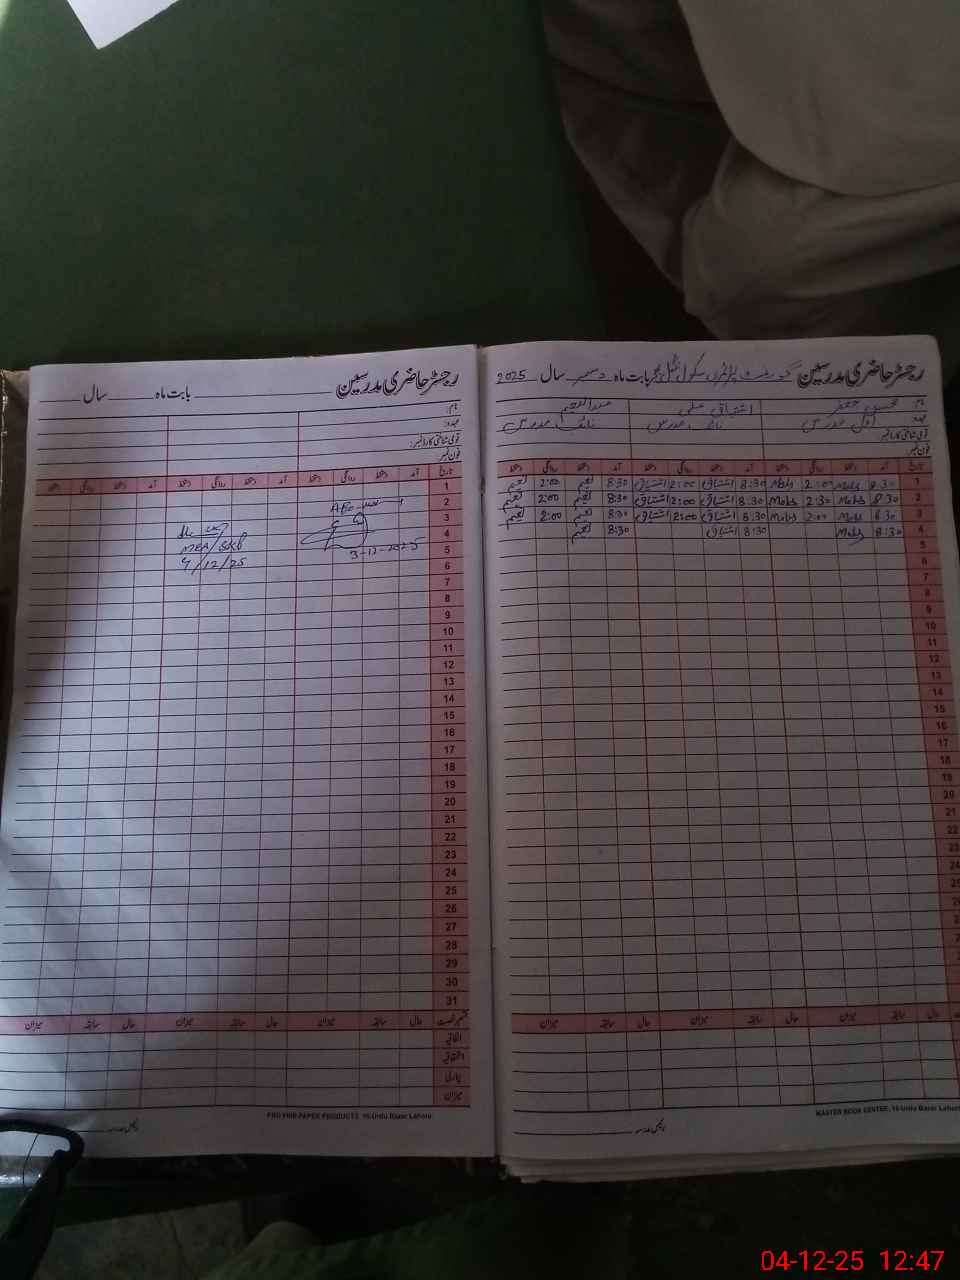 رجسٹر حاضری مدرسین گورنمنٹ پرائمری سکول بابت ماہ دسمبر سال 2025
نام: محسن جعفر اشتیاق علی عبدالنعیم
عہدہ: اول مدرس نائب مدرس نائب مدرس
قومی شناختی کارڈ نمبر:
فون نمبر
تاریخ آمد دستخط روانگی دستخط آمد دستخط روانگی دستخط آمد دستخط روانگی دستخط
1 8:30 Mohs 2:00 Mohs 8:30 اشتیاق 2:00 اشتیاق 8:30 نعیم 2:00 نعیم
2 8:30 Mohs 2:30 Mohs 8:30 اشتیاق 2:00 اشتیاق 8:30 نعیم 2:00 نعیم
3 8:30 Mohs 2:00 Mohs 8:30 اشتیاق 2:00 اشتیاق 8:30 نعیم 2:00 نعیم
4 8:30 Mohs 8:30 اشتیاق 8:30 نعیم
5
6
7
8
9
10
11
12
13
14
15
16
17
18
19
20
21
22
23
24
25
حال سابقہ میزان حال سابقہ میزان حال سابقہ میزان
MASTER BOOK CENTRE, 16-Urdu Bazar Lahore
رجسٹر حاضری مدرسین بابت ماہ سال
نام:
عہدہ:
قومی شناختی کارڈ نمبر:
فون نمبر:
تاریخ آمد دستخط روانگی دستخط آمد دستخط روانگی دستخط آمد دستخط روانگی دستخط
1
2
3
4
5
3-12-2025
MEA/
4/12/25
6
7
8
9
10
11
12
13
14
15
16
17
18
19
20
21
22
23
24
25
26
27
28
29
30
31
حال سابقہ میزان حال سابقہ میزان حال سابقہ میزان
اتفاقیہ
استحقاقیہ
بیماری
میزان
PAPER PRODUCTS 16-Urdu Bazar Lahore
04-12-25 12:47